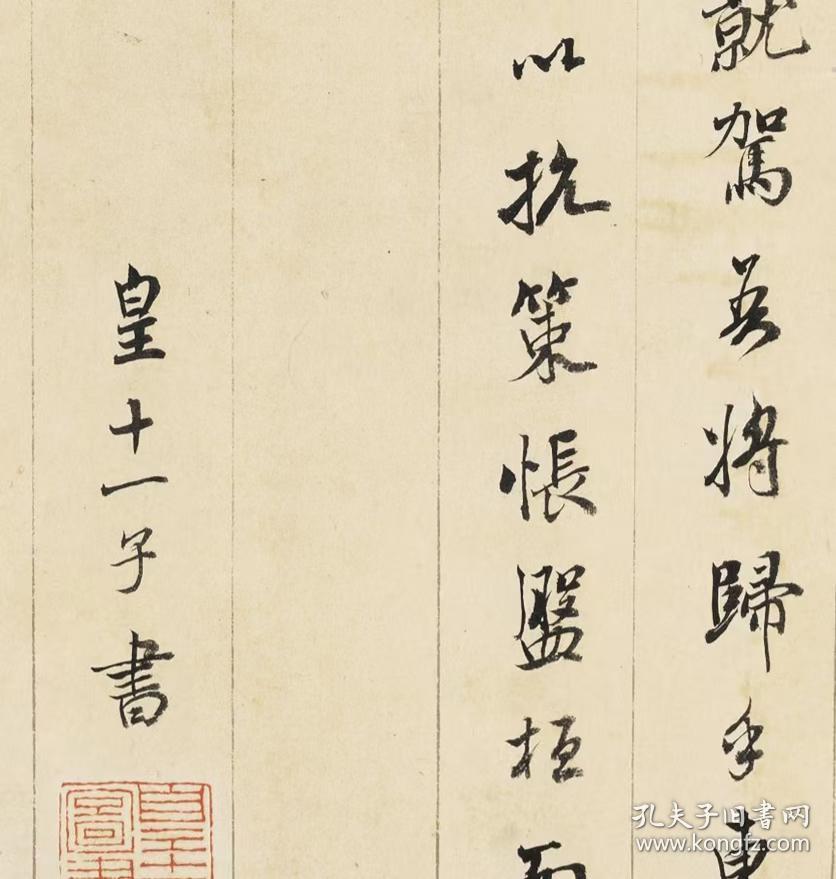 就駕吾將歸乎東
以抗策悵盤桓而
皇十一子書
皇
圖
孔夫子旧书网
www.kongfz.com